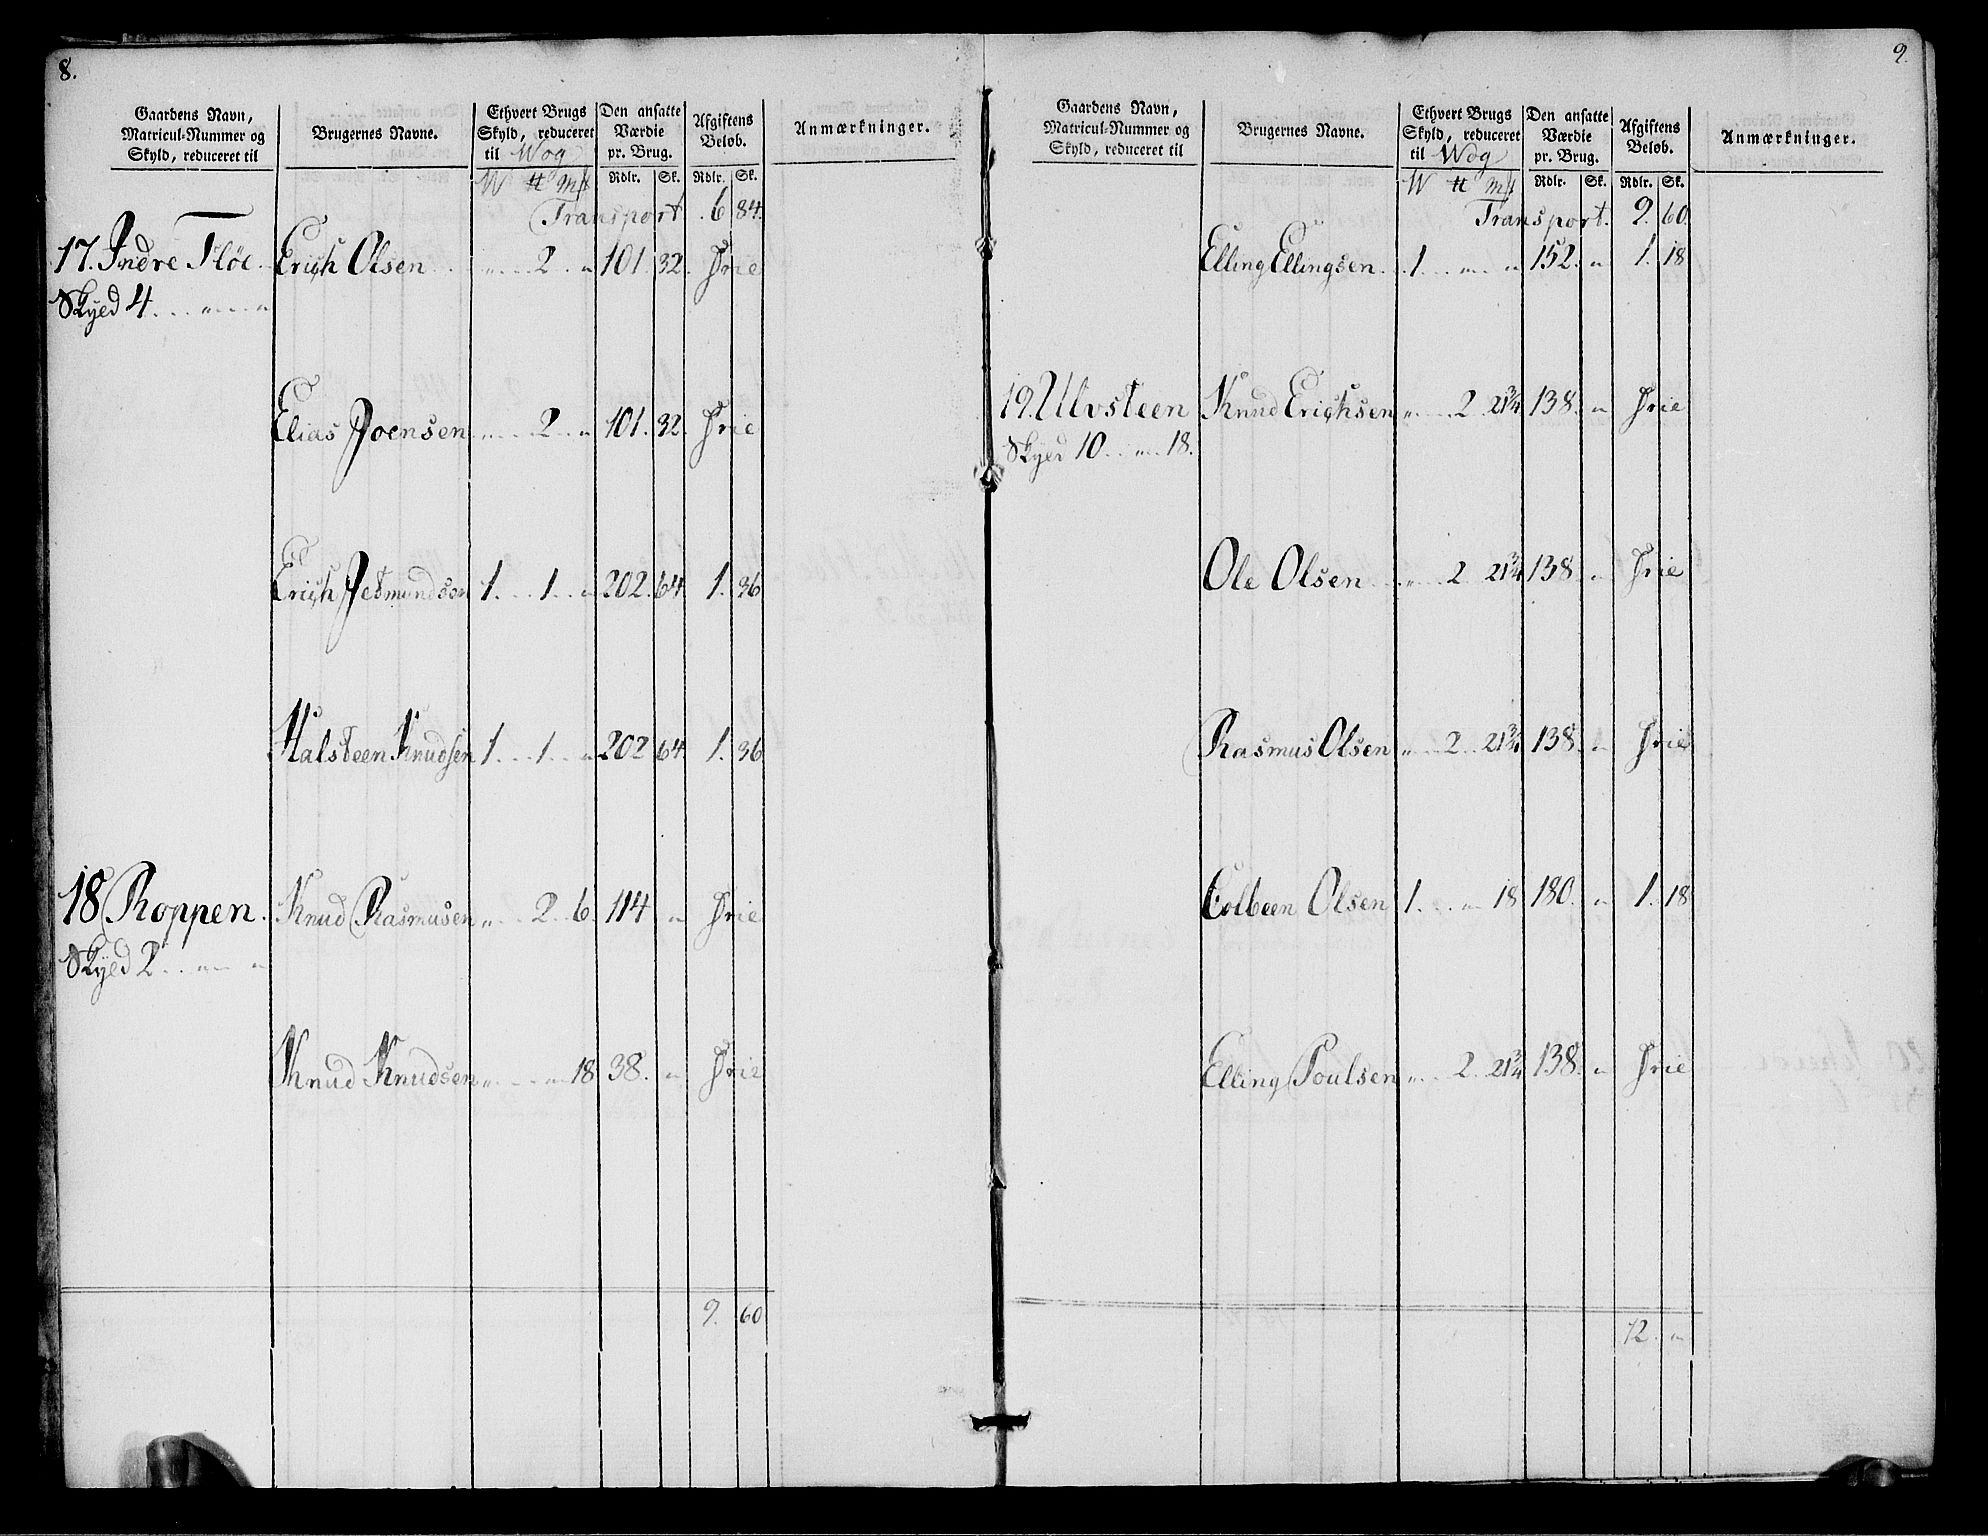 8.
Gaardens Navn, Matricul-Nummer og Skyld, reduceret til
Brugernes Navne.
Ethvert Brugs Skyld, reduceret til Wog
Den ansatte Værdie pr. Brug.
Afgiftens Beløb.
Anmærkninger.
W # mk Rdlr. Sk. Rdlr. Sk.
Transport 6 84.
17. Indre Fløe Erich Olsen „ 2 „ 101. 32. Frie
Skyed 4 „ „
Elias Joensen „ 2 „ 101. 32. Frie
Erich Jetmundsen 1 1 „ 202. 64 1. 36
Halsteen Knudsen 1 1 „ 202 64 1. 36
18 Roppen. Knud Rasmusen „ 2 6. 114 „ Frie
Skyed 2 „ „
Knud Knudsen „ „ 18 38. „ Frie
9. 60
9.
Gaardens Navn, Matricul-Nummer og Skyld, reduceret til
Brugernes Navne.
Ethvert Brugs Skyld, reduceret til Wog
Den ansatte Værdie pr. Brug.
Afgiftens Beløb.
Anmærkninger.
W # mk Rdlr. Sk. Rdlr. Sk.
Transport. 9. 60.
Elling Ellingsen 1 „ „ 152. „ 1. 18
19. Ulvsteen Knud Erichsen „ 2 21¾ 138. „ Frie
Skyed 10 „ 18.
Ole Olsen „ 2 21¾ 138. „ Frie
Rasmus Olsen „ 2 21¾ 138. „ Frie
Colbeen Olsen 1 „ 18 180. „ 1. 18
Elling Poulsen „ 2 21¾ 138. „ Frie
12. „